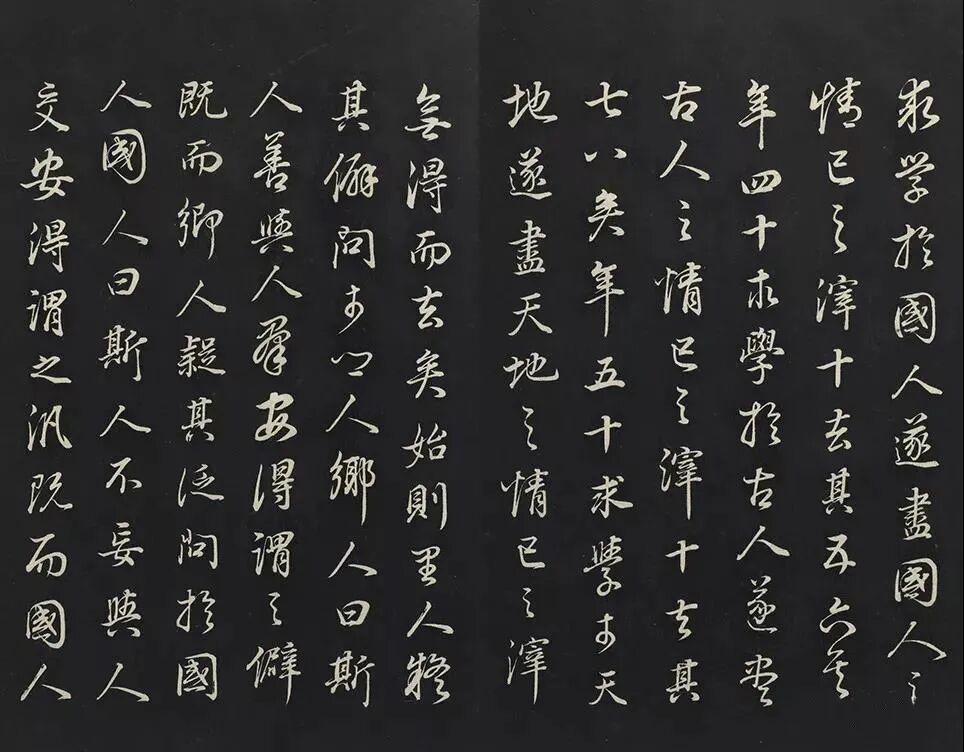 求学於國人遂盡國人之
情已之滓十去其五六矣
年四十求學於古人遂尽
古人之情已之滓十去其
七八矣年五十求學于天
地遂盡天地之情已之滓
無得而去矣始則里人疑
其僻問于鄉人鄉人曰斯
人善與人群安得謂之僻
既而鄉人疑其泛問於國
人國人曰斯人不妄與人
交安得謂之汎既而國人